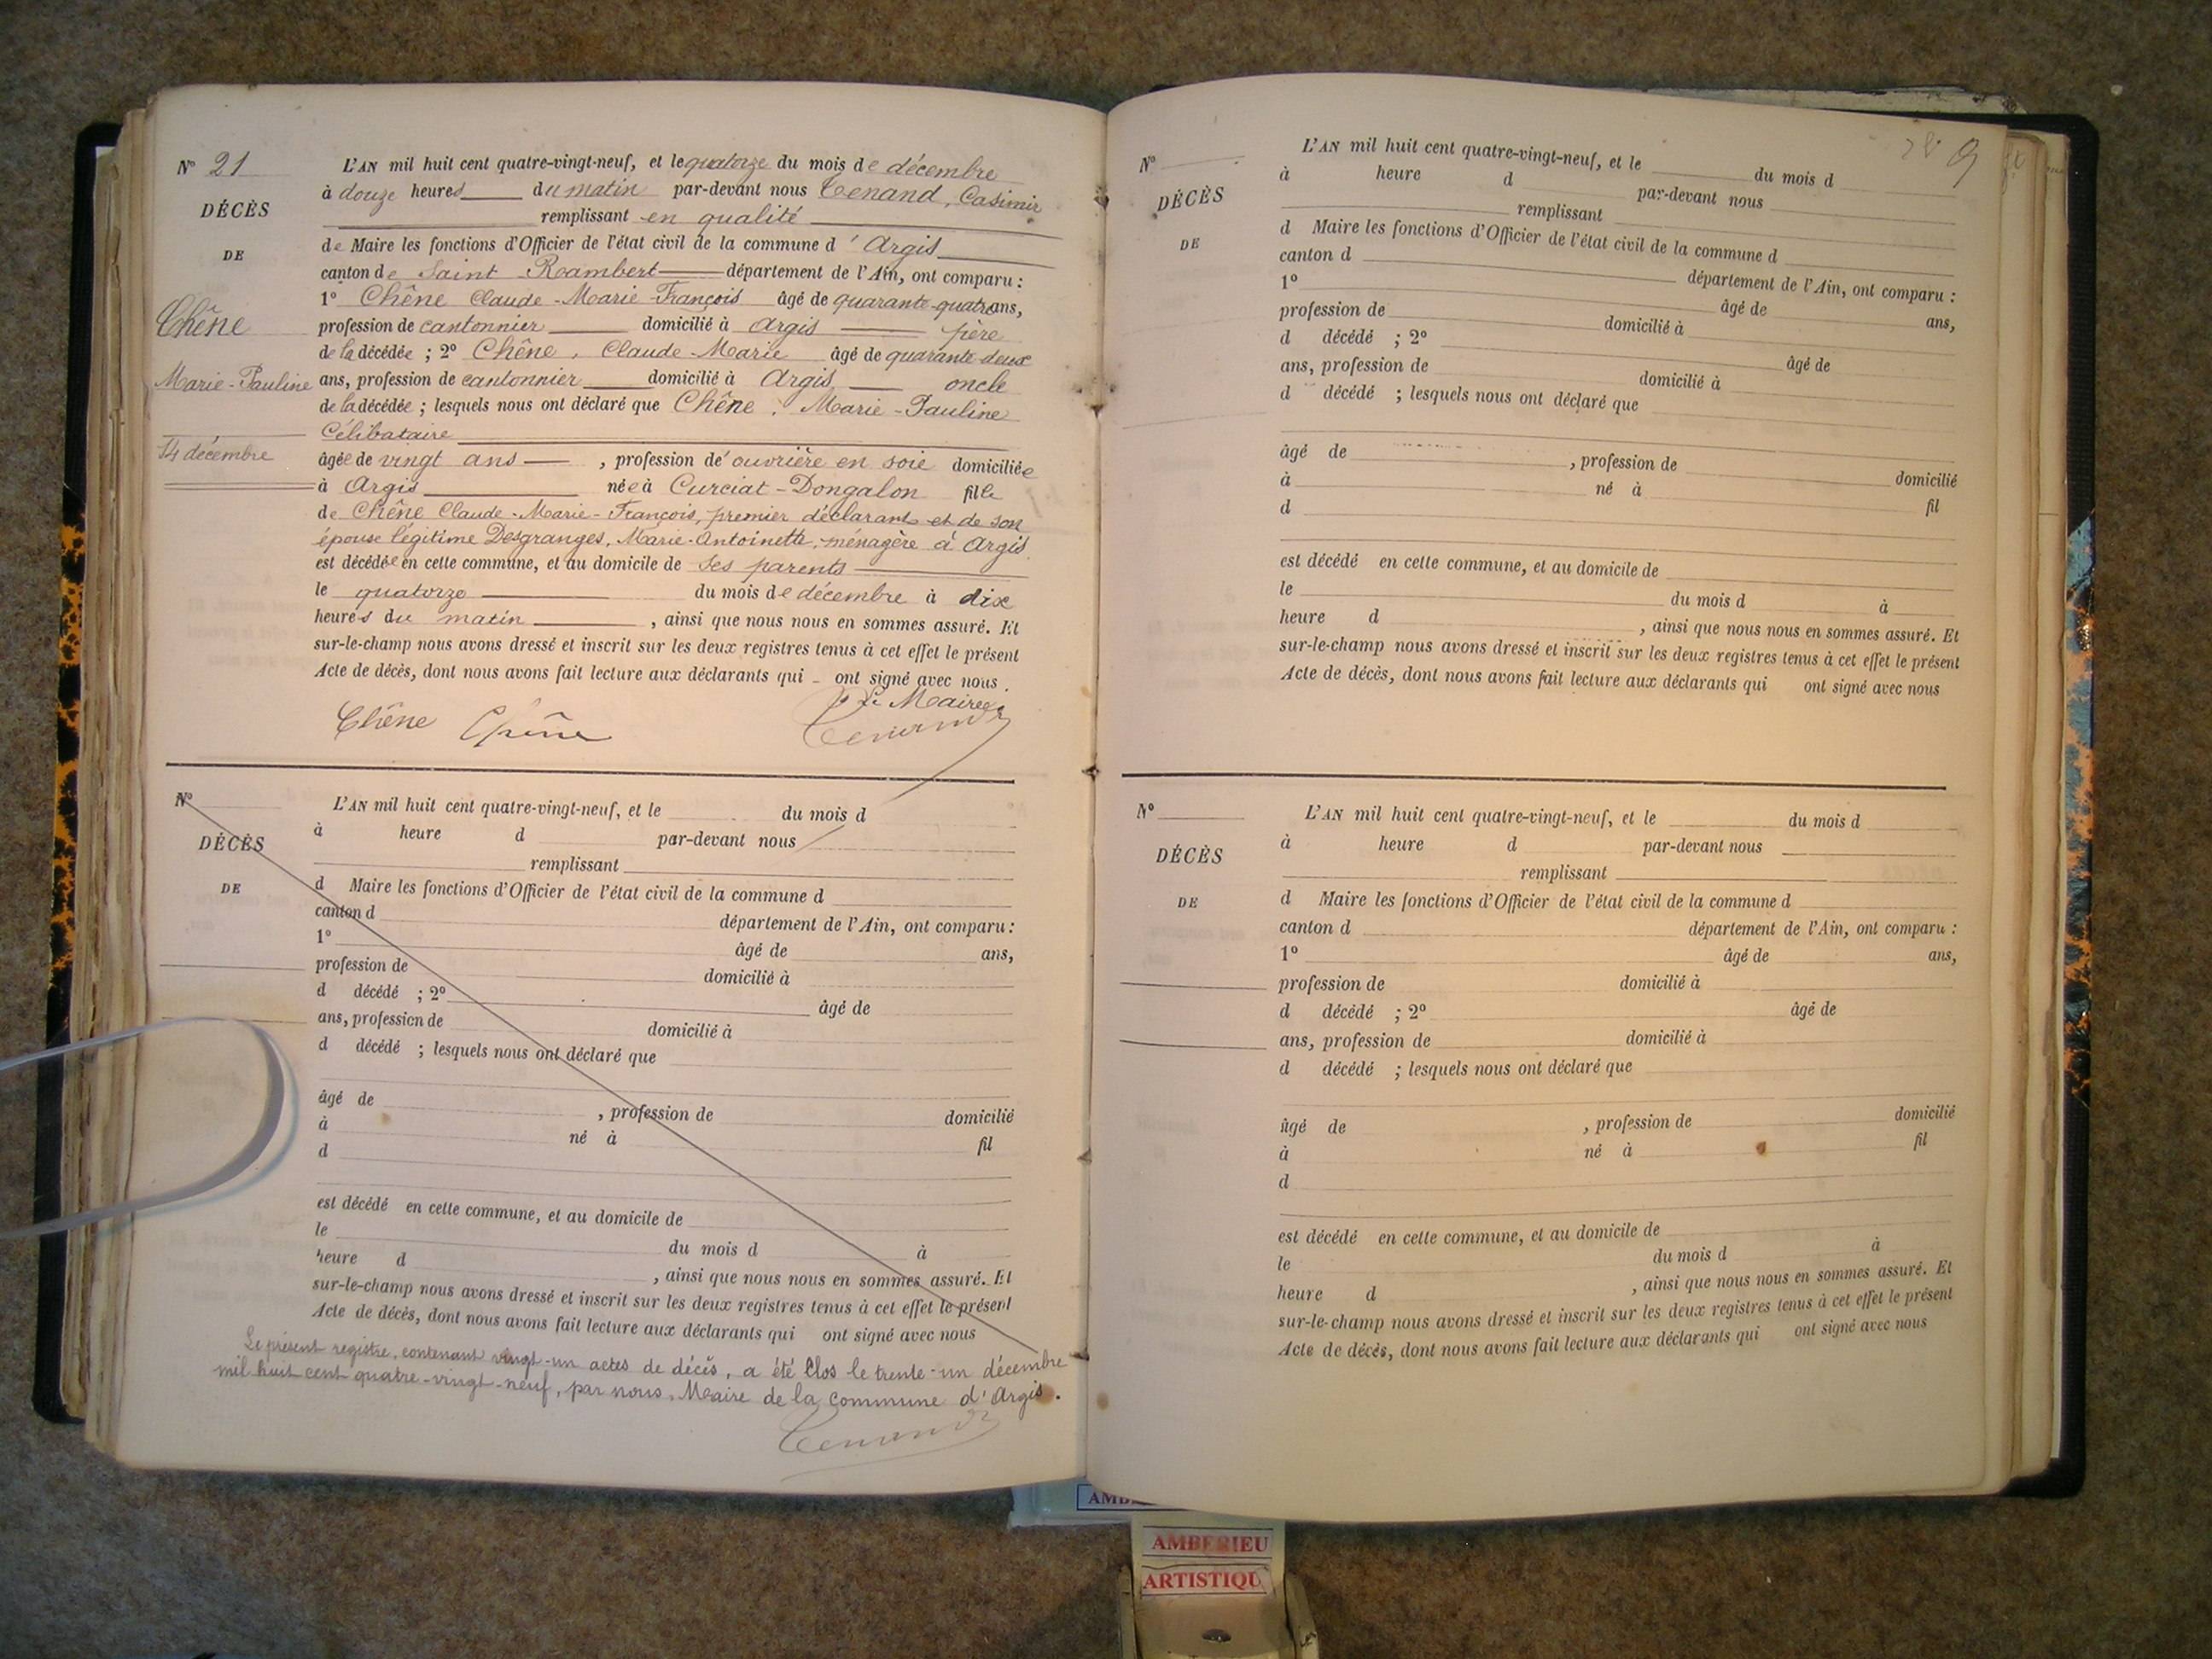 N° 21
DÉCÈS
DE
Chêne
Marie-Pauline
14 décembre
L'AN mil huit cent quatre-vingt-neuf, et le quatorze du mois de décembre
à douze heures du matin par-devant nous Tenand, Casimir
remplissant en qualité
de Maire les fonctions d'Officier de l'état civil de la commune d'Argis
canton de Saint-Rambert département de l'Ain, ont comparu :
1° Chêne Claude-Marie-François âgé de quarante-quatre ans,
profession de cantonnier domicilié à Argis père
de la décédée ; 2° Chêne, Claude-Marie âgé de quarante-deux
ans, profession de cantonnier domicilié à Argis oncle
de la décédée ; lesquels nous ont déclaré que Chêne, Marie-Pauline
Célibataire
âgée de vingt ans, profession d'ouvrière en soie domiciliée
à Argis née à Curciat-Dongalon fille
de Chêne Claude-Marie-François, premier déclarant et de son
épouse légitime Desgranges, Marie-Antoinette, ménagère à Argis
est décédée en cette commune, et au domicile de ses parents
le quatorze du mois de décembre à dix
heures du matin, ainsi que nous nous en sommes assuré. Et
sur-le-champ nous avons dressé et inscrit sur les deux registres tenus à cet effet le présent
Acte de décès, dont nous avons fait lecture aux déclarants qui ont signé avec nous.
Le Maire
Chêne Chêne Tenand
N°
DÉCÈS
DE
L'AN mil huit cent quatre-vingt-neuf, et le du mois d
à heure d par-devant nous
remplissant
d Maire les fonctions d'Officier de l'état civil de la commune d
canton d département de l'Ain, ont comparu :
1° âgé de ans,
profession de domicilié à
d décédé ; 2° âgé de
ans, profession de domicilié à
d décédé ; lesquels nous ont déclaré que
âgé de , profession de domicilié
à né à fil
d
est décédé en cette commune, et au domicile de
le du mois d à
heure d , ainsi que nous nous en sommes assuré. Et
sur-le-champ nous avons dressé et inscrit sur les deux registres tenus à cet effet le présent
Acte de décès, dont nous avons fait lecture aux déclarants qui ont signé avec nous
Le présent registre, contenant vingt-un actes de décès, a été Clos le trente-un décembre
mil huit cent quatre-vingt-neuf, par nous, Maire de la commune d'Argis.
Tenand
N°
DÉCÈS
DE
L'AN mil huit cent quatre-vingt-neuf, et le du mois d
à heure d par-devant nous
remplissant
d Maire les fonctions d'Officier de l'état civil de la commune d
canton d département de l'Ain, ont comparu :
1° âgé de ans,
profession de domicilié à
d décédé ; 2° âgé de
ans, profession de domicilié à
d décédé ; lesquels nous ont déclaré que
âgé de , profession de domicilié
à né à fil
d
est décédé en cette commune, et au domicile de
le du mois d à
heure d , ainsi que nous nous en sommes assuré. Et
sur-le-champ nous avons dressé et inscrit sur les deux registres tenus à cet effet le présent
Acte de décès, dont nous avons fait lecture aux déclarants qui ont signé avec nous
N°
DÉCÈS
DE
L'AN mil huit cent quatre-vingt-neuf, et le du mois d
à heure d par-devant nous
remplissant
d Maire les fonctions d'Officier de l'état civil de la commune d
canton d département de l'Ain, ont comparu :
1° âgé de ans,
profession de domicilié à
d décédé ; 2° âgé de
ans, profession de domicilié à
d décédé ; lesquels nous ont déclaré que
âgé de , profession de domicilié
à né à fil
d
est décédé en cette commune, et au domicile de
le du mois d à
heure d , ainsi que nous nous en sommes assuré. Et
sur-le-champ nous avons dressé et inscrit sur les deux registres tenus à cet effet le présent
Acte de décès, dont nous avons fait lecture aux déclarants qui ont signé avec nous
AMBERIEU
ARTISTIQU